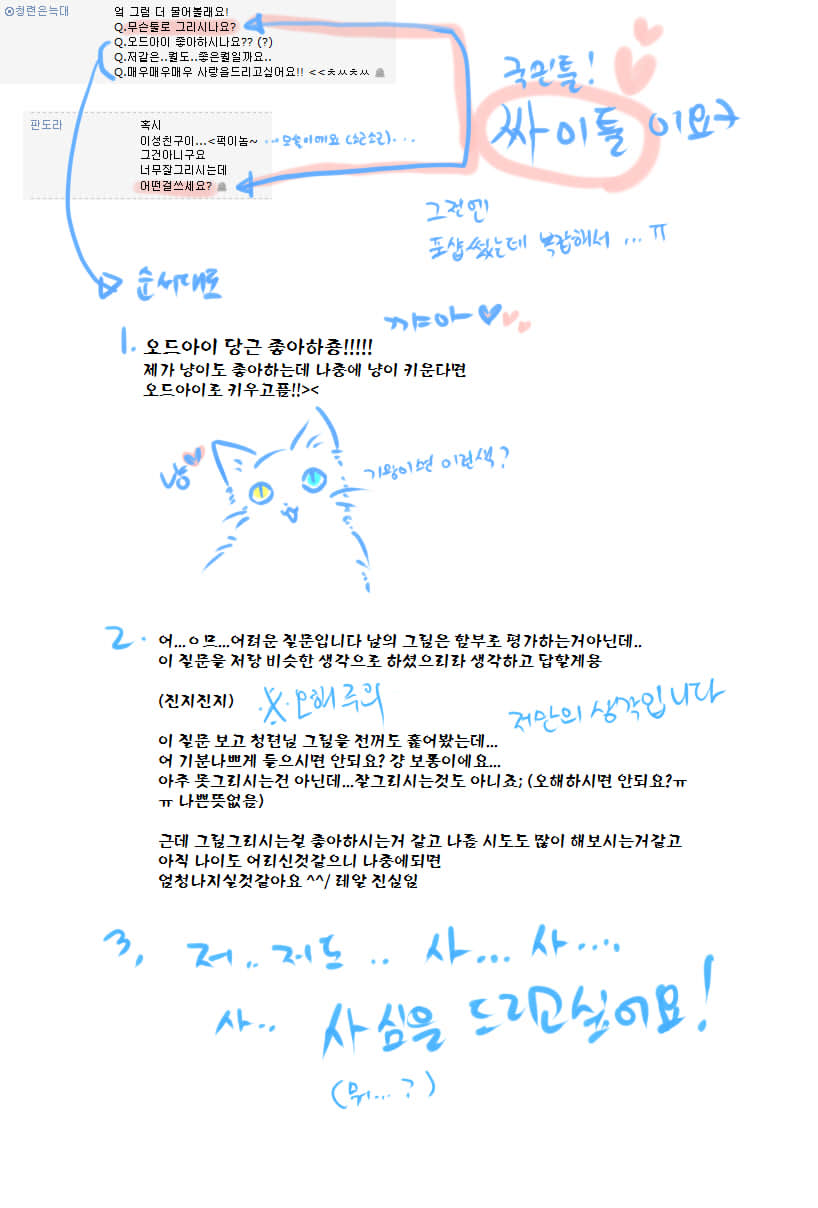 ⊗청련은늑대
엌 그럼 더 물어볼래요!
Q.무슨툴로 그리시나요?
Q.오드아이 좋아하시나요?? (?)
Q.저같은..퀄도..좋은퀄일까요..
Q.매우매우매우 사랑을드리고싶어요!! <<츠쓰츠쓰
판도라
혹시
이성친구이...<퍽이놈~
그건아니구요
너무잘그리시는데
어떤걸쓰세요?
...모솔이에요 (소근소근)...
국민툴!
싸이툴 이요
그전엔
포샵썼는데 복잡해서 ...ㅠ
순서대로
꺄아♥
1. 오드아이 당근 좋아하죵!!!!!
제가 냥이도 좋아하는데 나중에 냥이 키운다면
오드아이로 키우고픔!!><
냥
기왕이면 이런색?
2. 어...ㅇ므...어려운 질문입니다 남의 그림은 함부로 평가하는거아닌데..
이 질문을 저랑 비슷한 생각으로 하셨으리라 생각하고 답할게용
(진지진지)
※오해 주의
저만의 생각입니다
이 질문 보고 청련님 그림을 전꺼도 훑어봤는데...
어 기분나쁘게 들으시면 안되요? 걍 보통이에요...
아주 못그리시는건 아닌데...잘그리시는것도 아니죠; (오해하시면 안되요?ㅠ
ㅠ 나쁜뜻없음)
근데 그림그리시는걸 좋아하시는거 같고 나름 시도도 많이 해보시는거같고
아직 나이도 어리신것같으니 나중에되면
엄청나지실것같아요 ^^/ 레알 진심임
3, 저.. 저도 .. 사... 사....
사.. 사심을 드리고싶어요!
(뭐...?)